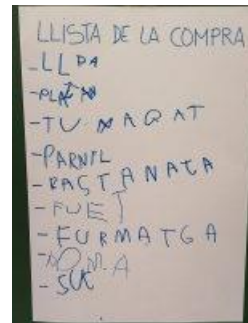 LLISTA DE LA COMPRA
-PLATAN
-TUMAQAT
-PARNIL
-PASTANATA
-FUET
-FURMATGA
-SUC